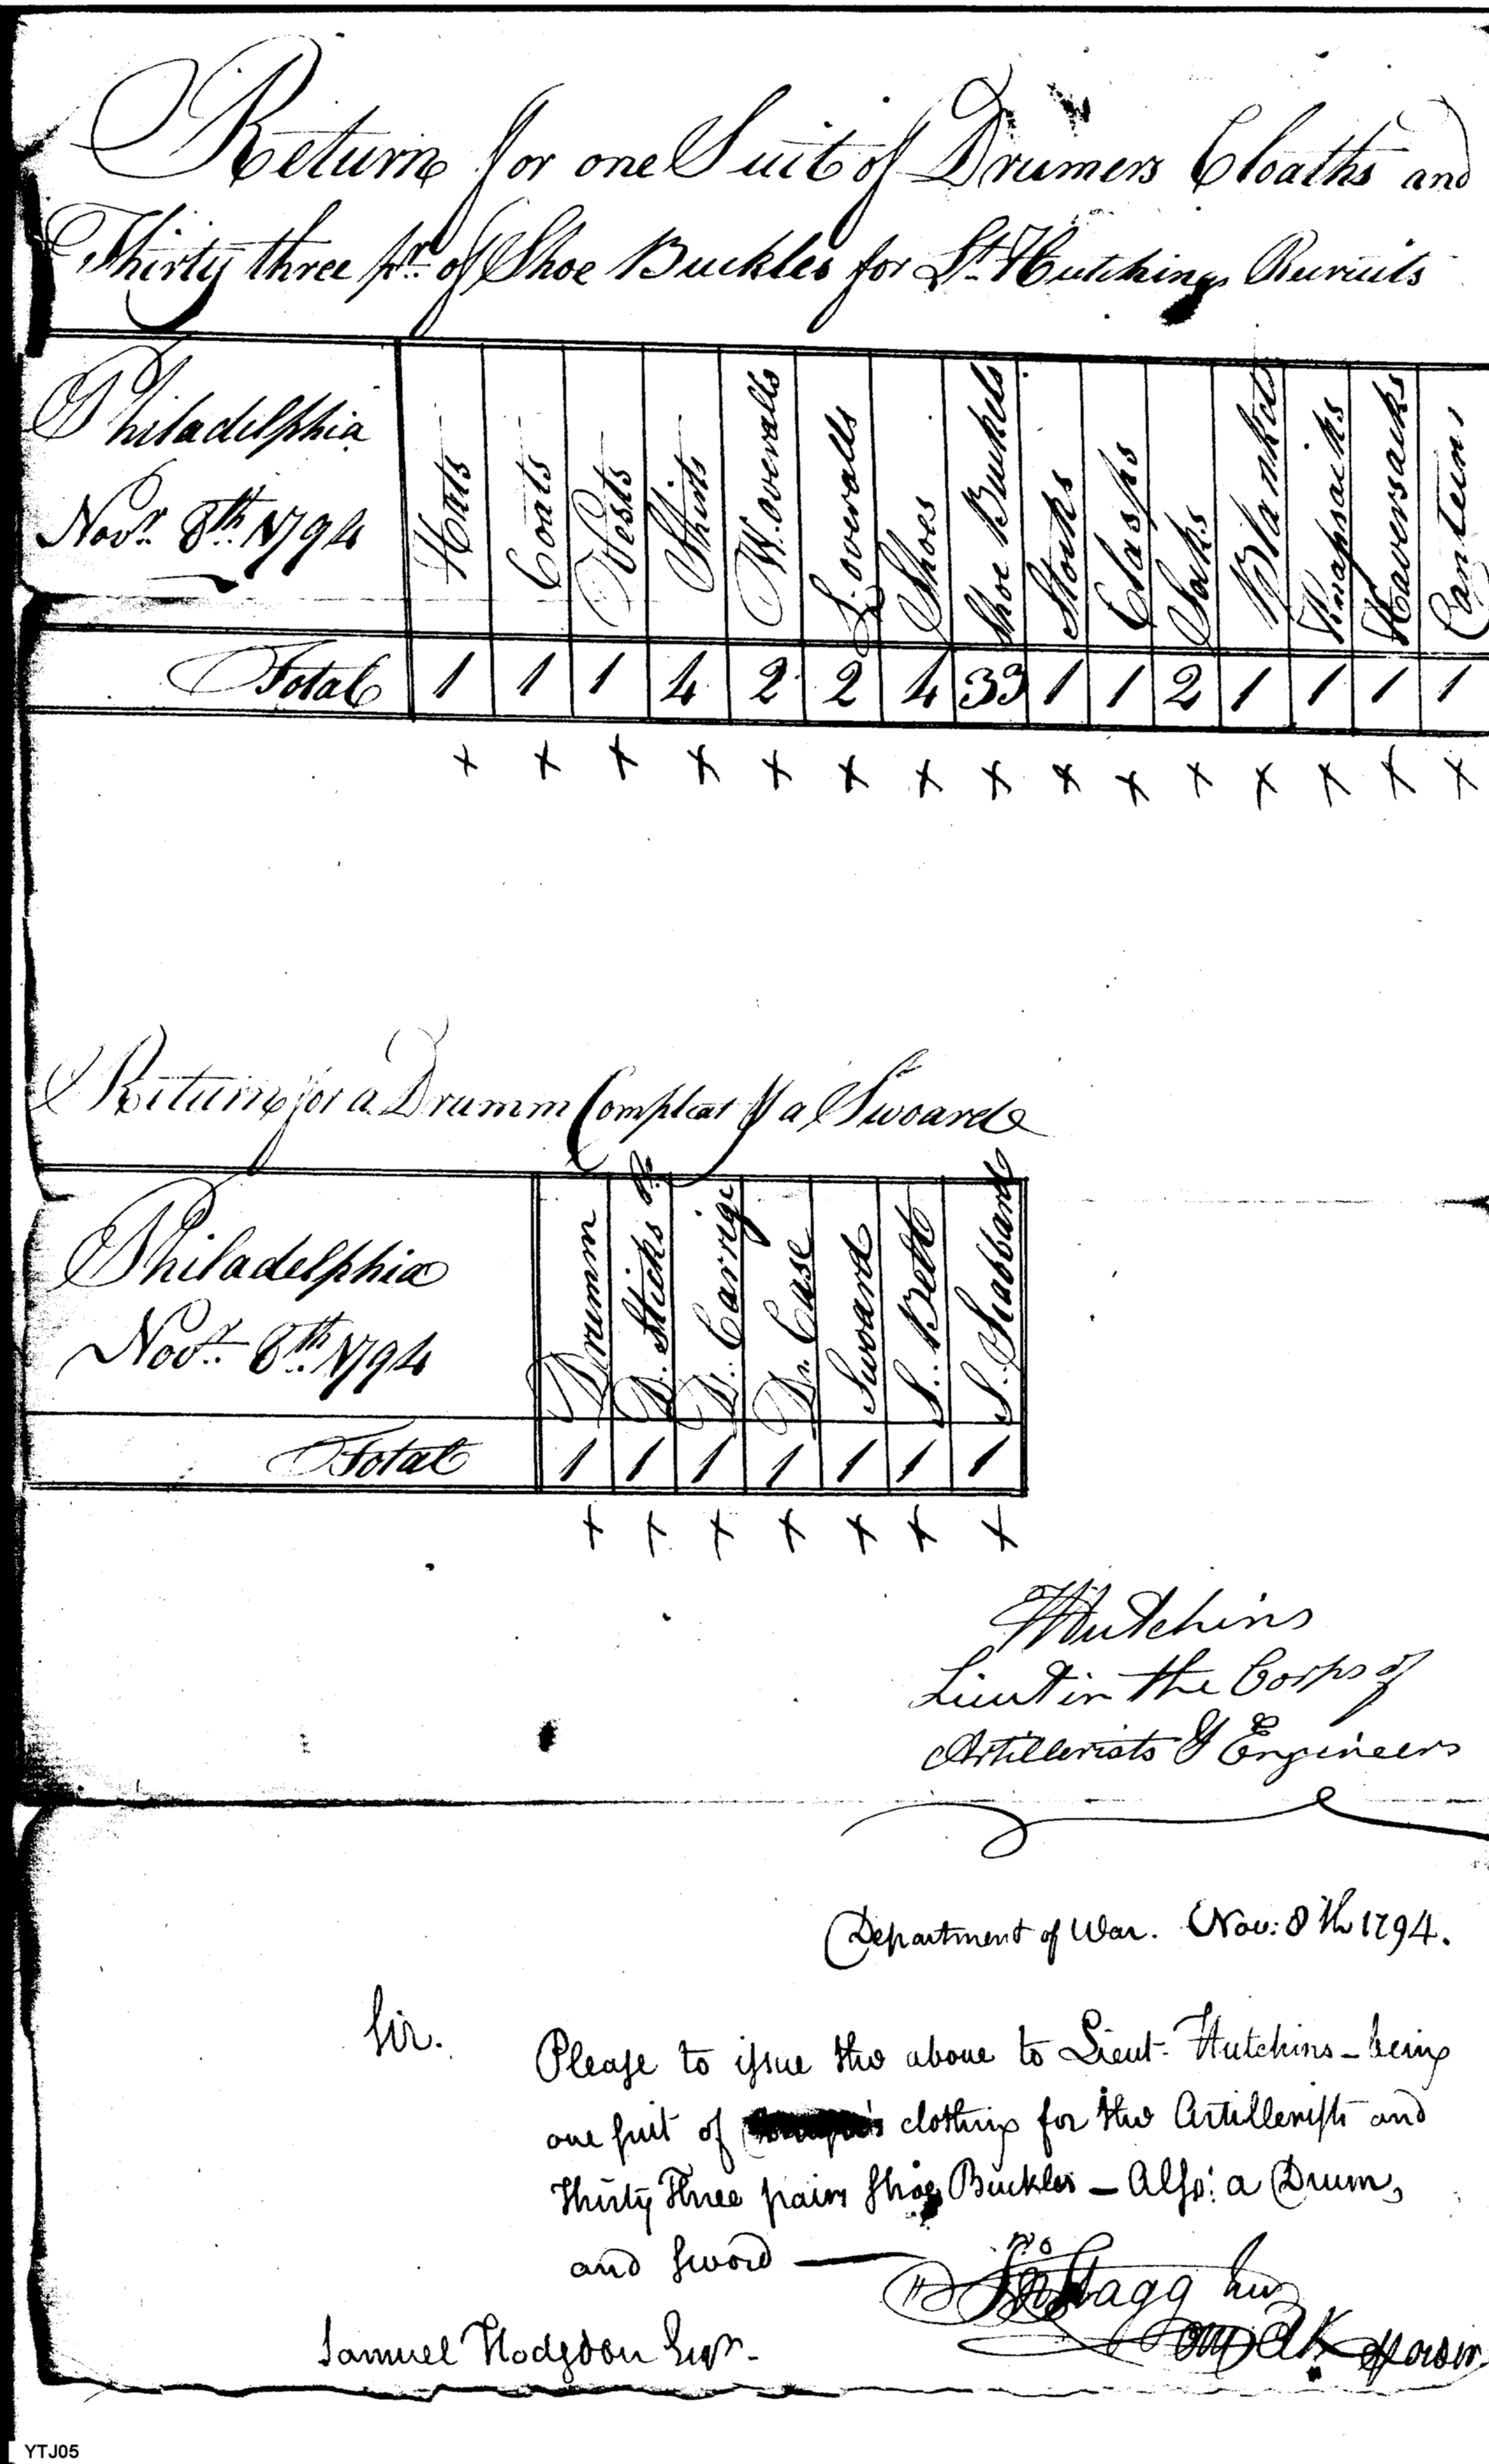 Return for one Suit of Drumers Cloaths and
Thirty three pr. of Shoe Buckles for Lt. Hutchings Recruits
Philadelphia
Novr. 8th. 1794
Hats Coats Vests Shirts W. overalls L. overalls Shoes Shoe Buckels Stocks Clasps Socks Blankets Knapsacks Haversacks Canteens
Total 1 1 1 4 2 2 4 33 1 1 2 1 1 1 1
+ + + + + + + + + + + + + + +
Return for a Drumm Compleat & a Swoard
Philadelphia
Novr. 8th. 1794
Drumm D. Sticks pr. D. Carrige Dr. Case Swoard S. Belt S. Scabbard
Total 1 1 1 1 1 1 1
+ + + + + + +
Hutchins
Lieut in the Corps of
Artillerists & Engineers
Department of War. Nov: 8th 1794.
Sir.
Please to issue the above to Lieut. Hutchins – being
one suit of clothing for the Artillerists and
Thirty Three pairs Shoe Buckles – Also: a Drum,
and Sword —
Jno Stagg Junr
Samuel Hodgdon Esqr.
YTJ05